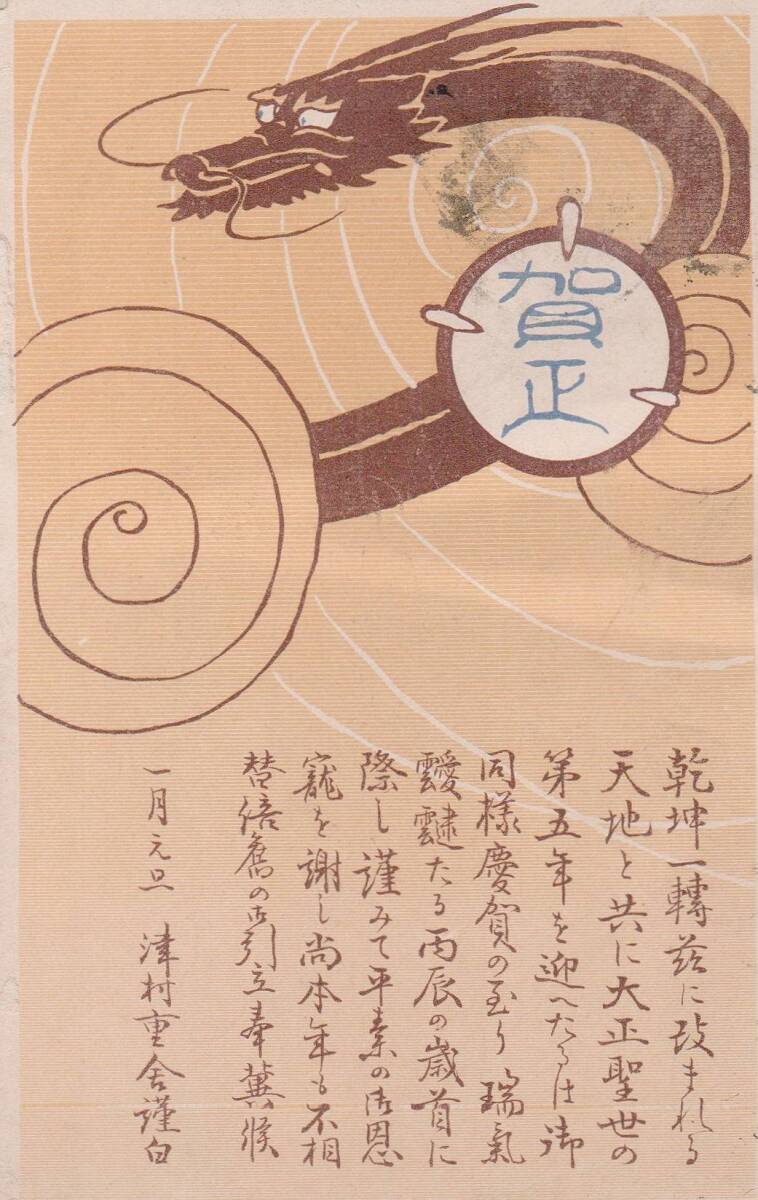 賀
正
乾坤一轉茲に改まれる
天地と共に大正聖世の
第五年を迎へたるは御
同様慶賀の至り瑞氣
靉靆たる丙辰の歳首に
際し謹みて平素の御恩
寵を謝し尚本年も不相
替倍舊の御引立奉冀候
一月元旦 津村重舎謹白